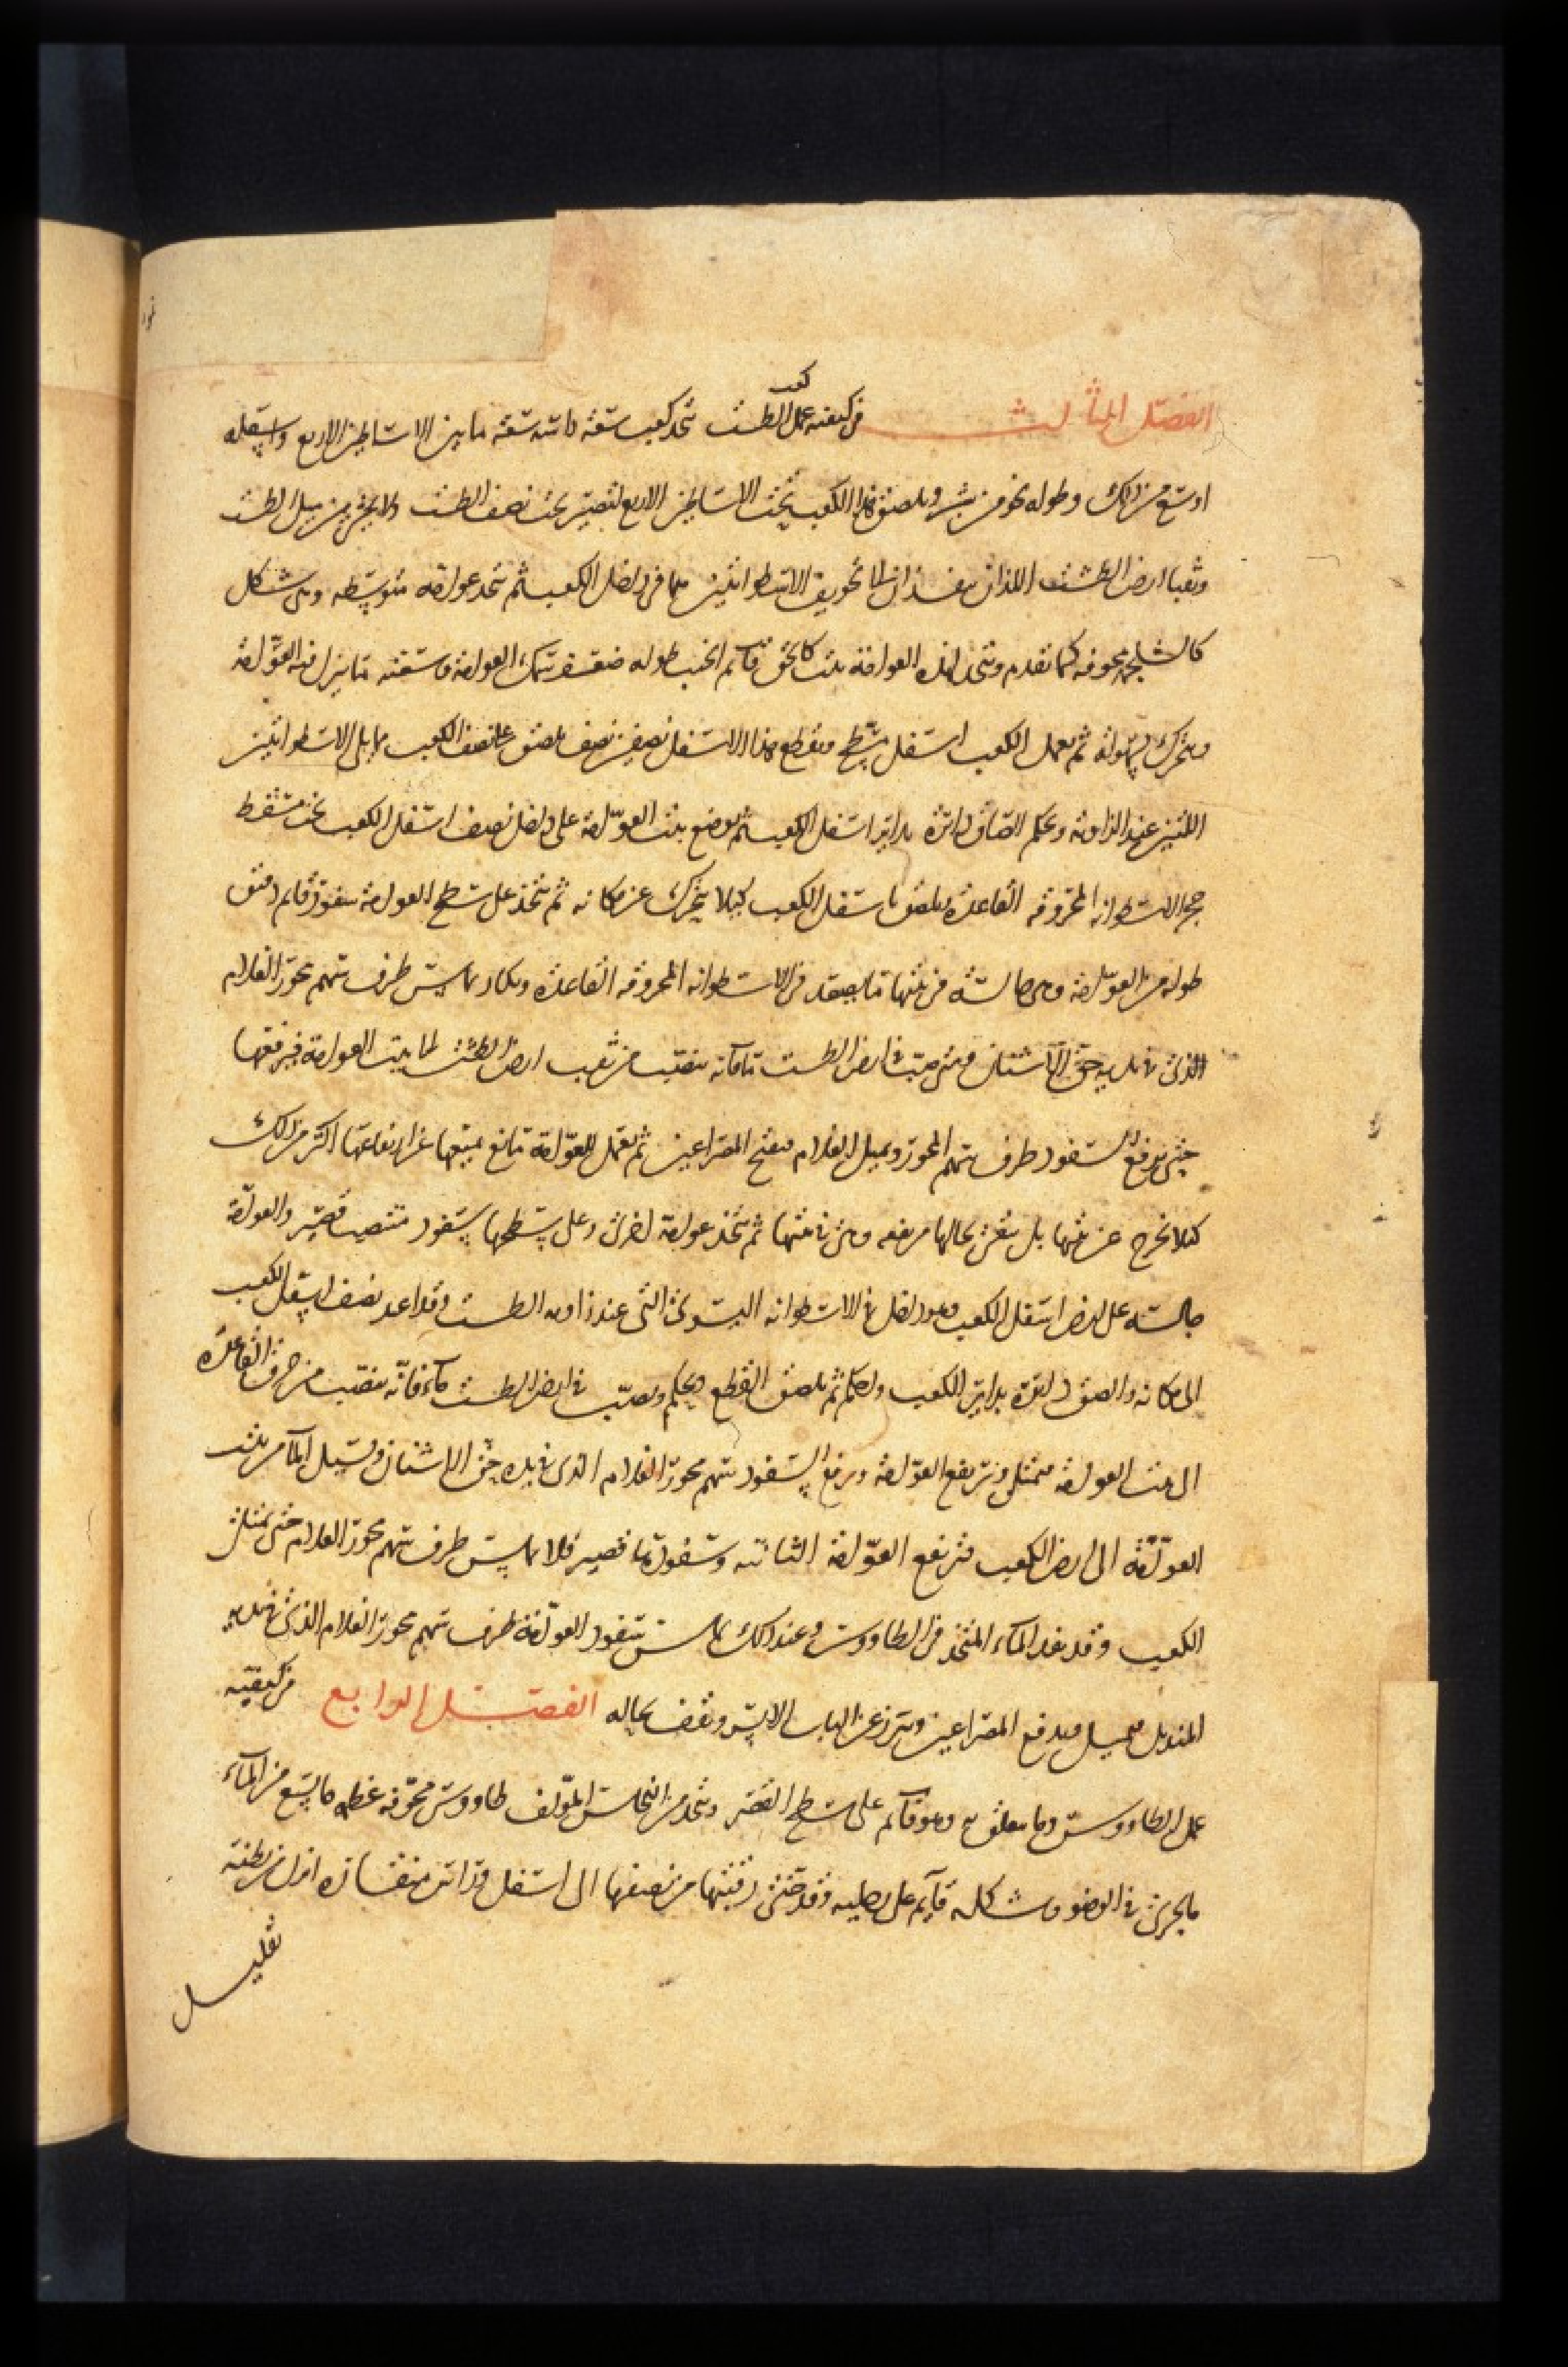 الفصل الثالث في كيفية عمل كعب الطست يتخذ كعب سعته ما بين الاساطين الاربع واسفله
اوسع من ذلك وطوله نحو من شبر ويلصق هذا الكعب تحت الاساطين الاربع لتصير تحت نصف الطست
وثقبا ارض الطست اللذان ينفذان الى تجويف الاسطوانتين هما في داخل الكعب ثم يتخذ عوامة متوسطه وهي شكل
كالشلجمة مجوفه كما تقدم ويتخذ لهذه العوامة بيت كالحق قائم الجنب طوله ضعف سمك العوامة وسعته ما ينزل فيه العوامة
ويتحرك بسهولة ثم يعمل الكعب اسفل مسطح ويقطع هذا الاسفل نصفين نصف يلصق على نصف الكعب مما يلي الاسطوانتين
اللتين عند الزاوية ويحكم الصاق دائره بداير اسفل الكعب ثم يوضع بيت العوامة على داخل نصف اسفل الكعب تحت مسقط
حجر الاسطوانه المخروقه القاعدة ويلصق باسفل الكعب كيلا يتحرك عن مكانه ثم يتخذ على سطح العوامة سفود قايم دقيق
طوله من العوامة وهي جالسة في بيتها ما يصعد في الاسطوانه المخروقه القاعدة ويكاد يماس طرف سهم محور الغلام
الذي في يديه حق الاشنان ومتى صب في ارض الطست ماء فانه ينصب من ثقب ارض الطست الى بيت العوامة فيرفعها
حتى يدفع السفود طرف سهم المحور ويميل الغلام فيفتح المصراعين ثم يعمل للعوامة مانع يمنعها عن ارتفاعها اكثر من ذلك
كيلا تخرج عن بيتها بل تبقى بحالها مرتفعه وهي في بيتها ثم يتخذ عوامة اخرى وعلى سطحها سفود منتصب قصير والعوامة
جالسه على ارض اسفل الكعب وهو داخل في الاسطوانه اليسرى التي عند زاوية الطست وقد اعد نصف اسفل الكعب
الى مكانه والصق دائره بداير الكعب واحكم ثم يلصق القطع ويحكم ويصب في ارض الطست ماء فانه ينصب من خرق القاعدة
الى بيت العوامة فيمتلي وترتفع العوامة ويرفع السفود سهم محور الغلام الذي في يده حق الاشنان ويسيل الماء من بيت
العوامة الى ارض الكعب فترتفع العوامة الثانيه وسفودها قصير فلا يماس طرف سهم محور الغلام حتى يمتلئ
الكعب وقد نفد الماء المتخذ في الطاووس وعند ذلك يماس سفود العوامة طرف سهم محور الغلام الذي في يديه
المنديل فيميل ويدفع المصراعين ويبرز عن الباب الايسر ويقف بحاله الفصل الرابع في كيفية
عمل الطاووس وما يتعلق به وهو قائم على سطح القصر ويتخذ من النحاس المؤلف طاووس مجوفه عظمه ما يسع من الماء
ما يجزئ في الوضو وشكله قايم على رجليه وقد حنى رقبتها من نصفها الى اسفل وراس منقاره انزل من بطنه
بقليل